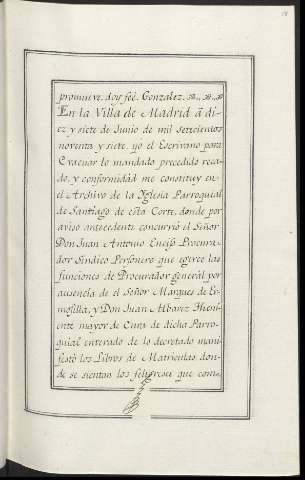 promueve, doy feé. Gonzalez.
En la Villa de Madrid á di-
ez y siete de Junio de mil setecientos
noventa y siete, yo el Escrivano para
Evacuar lo mandado precedido reca-
do, y conformidád me constituy en
el Archivo de la Yglesia Parroquial
de Santiago de esta Corte, donde por
aviso antecedente concurrió el Señor
Don Juan Antonio Enciso Procura-
dor Sindico Personero que egerce las
funciones de Procurador general por
ausencia de el Señor Marques de
mosilla, y Don Juan Albarez
ente mayor de Cura de dicha Parro-
quial enterado de lo decretado mani-
festó los Libros de Matriculas don-
de se sientan los feligreses que com-